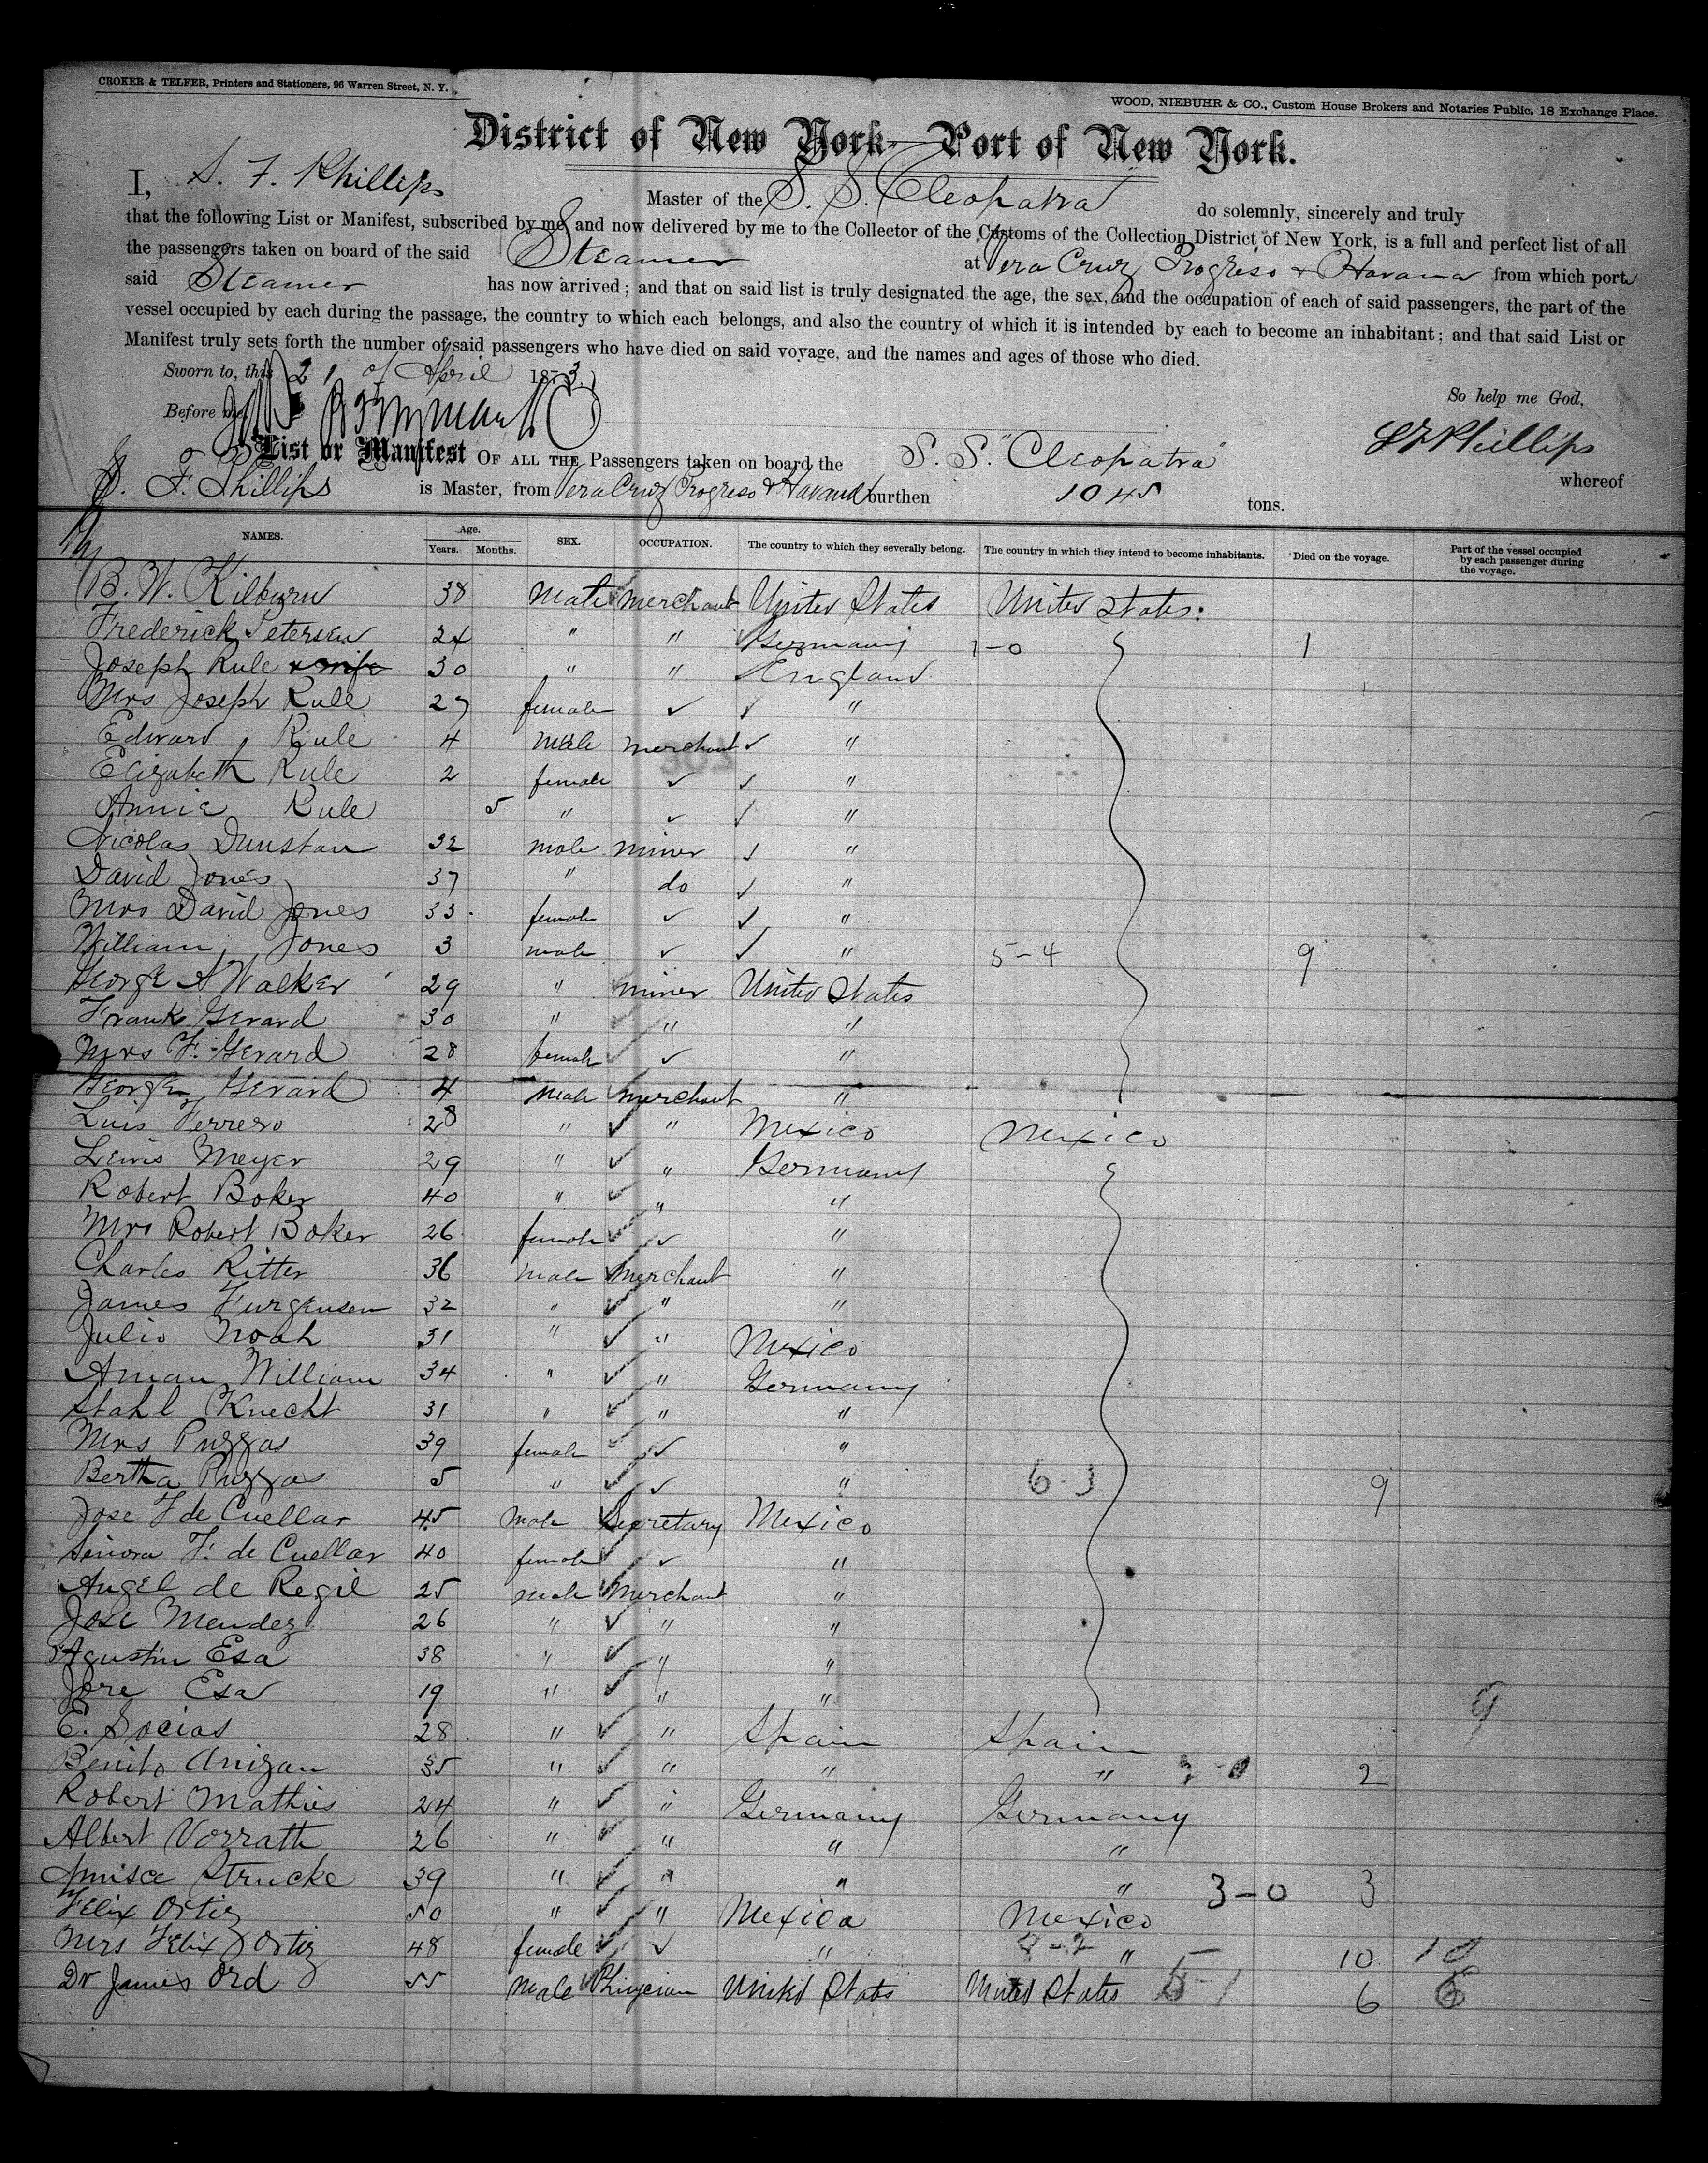 CROKER & TELFER, Printers and Stationers, 96 Warren Street, N. Y.
WOOD, NIEBUHR & CO., Custom House Brokers and Notaries Public, 18 Exchange Place.
District of New York—Port of New York.
I, S. F. Phillips Master of the S. S. Cleopatra do solemnly, sincerely and truly
that the following List or Manifest, subscribed by me, and now delivered by me to the Collector of the Customs of the Collection District of New York, is a full and perfect list of all
the passengers taken on board of the said Steamer at Vera Cruz Progreso & Havana from which port
said Steamer has now arrived; and that on said list is truly designated the age, the sex, and the occupation of each of said passengers, the part of the
vessel occupied by each during the passage, the country to which each belongs, and also the country of which it is intended by each to become an inhabitant; and that said List or
Manifest truly sets forth the number of said passengers who have died on said voyage, and the names and ages of those who died.
Sworn to, this 21 of April 1873.
So help me God,
Before me,
S F Phillips
List or Manifest OF ALL THE Passengers taken on board the S. S. "Cleopatra" whereof
S. F. Phillips is Master, from Vera Cruz Progreso & Havana burthen 1045 tons.
NAMES. Age. Years. Months. SEX. OCCUPATION. The country to which they severally belong. The country in which they intend to become inhabitants. Died on the voyage. Part of the vessel occupied by each passenger during the voyage.
B. W. Kilburn 38 Male Merchant United States United States.
Frederick Petersen 24 " " Germany 1-0 1
Joseph Rule & wife 30 " " England
Mrs Joseph Rule 27 female ✓ ✓ "
Edward Rule 4 Male Merchant ✓ "
Elizabeth Rule 2 female ✓ ✓ "
Annie Rule 5 " ✓ ✓ "
Nicolas Dunstan 32 male miner ✓ "
David Jones 37 " do ✓ "
Mrs David Jones 33 female ✓ ✓ "
William Jones 3 male ✓ ✓ " 5-4 9
George A Walker 29 " miner United States
Frank Gerard 30 " " "
Mrs F. Gerard 28 female ✓ "
George Gerard 4 Male Merchant "
Luis Ferrero 28 " ✓ " Mexico Mexico
Lewis Meyer 29 " ✓ " Germany
Robert Boker 40 " ✓ " "
Mrs Robert Boker 26 female ✓ ✓ "
Charles Ritter 36 Male Merchant "
James Furgensen 32 " ✓ " "
Julio Noah 31 " ✓ " Mexico
Aman William 34 " ✓ " Germany
Stahl Knecht 31 " ✓ " "
Mrs Puggas 39 female ✓ ✓ "
Bertha Puggas 5 " ✓ ✓ " 6-3 9
Jose F de Cuellar 45 Male Secretary Mexico
Sinora F. de Cuellar 40 female ✓ ✓ "
Angel de Regil 25 male Merchant "
Jose Mendez 26 " ✓ " "
Agustin Esa 38 " ✓ " "
Jore Esa 19 " ✓ " " 9
E. Socias 28 " ✓ " Spain Spain
Benito Anizan 35 " ✓ " " " 2
Robert Mathies 24 " ✓ " Germany Germany
Albert Vorrath 26 " ✓ " " "
Strucke 39 " ✓ " " " 3-0 3
Felix Ortiz 50 " ✓ " Mexico Mexico
Mrs Felix Ortiz 48 female ✓ ✓ " 8-2 " 10 10
Dr James Ord 55 Male Phisycian United States United States 5-1 6 6